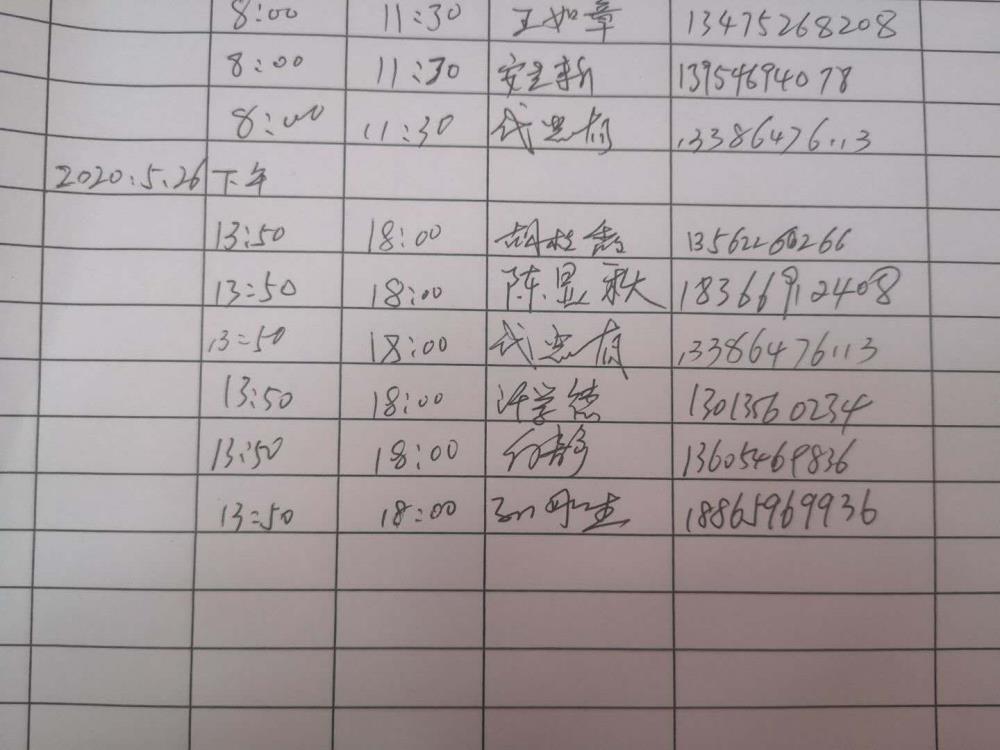 8:00 11:30 王如章 13475268208
8:00 11:30 安呈新 13954694078
8:00 11:30 武忠有 13386476113
2020.5.26 下午
13:50 18:00 13562260266
13:50 18:00 陈显秋 18366912408
13:50 18:00 武忠有 13386476113
13:50 18:00 许学德 13013560234
13:50 18:00 静 13605469836
13:50 18:00 18865969936